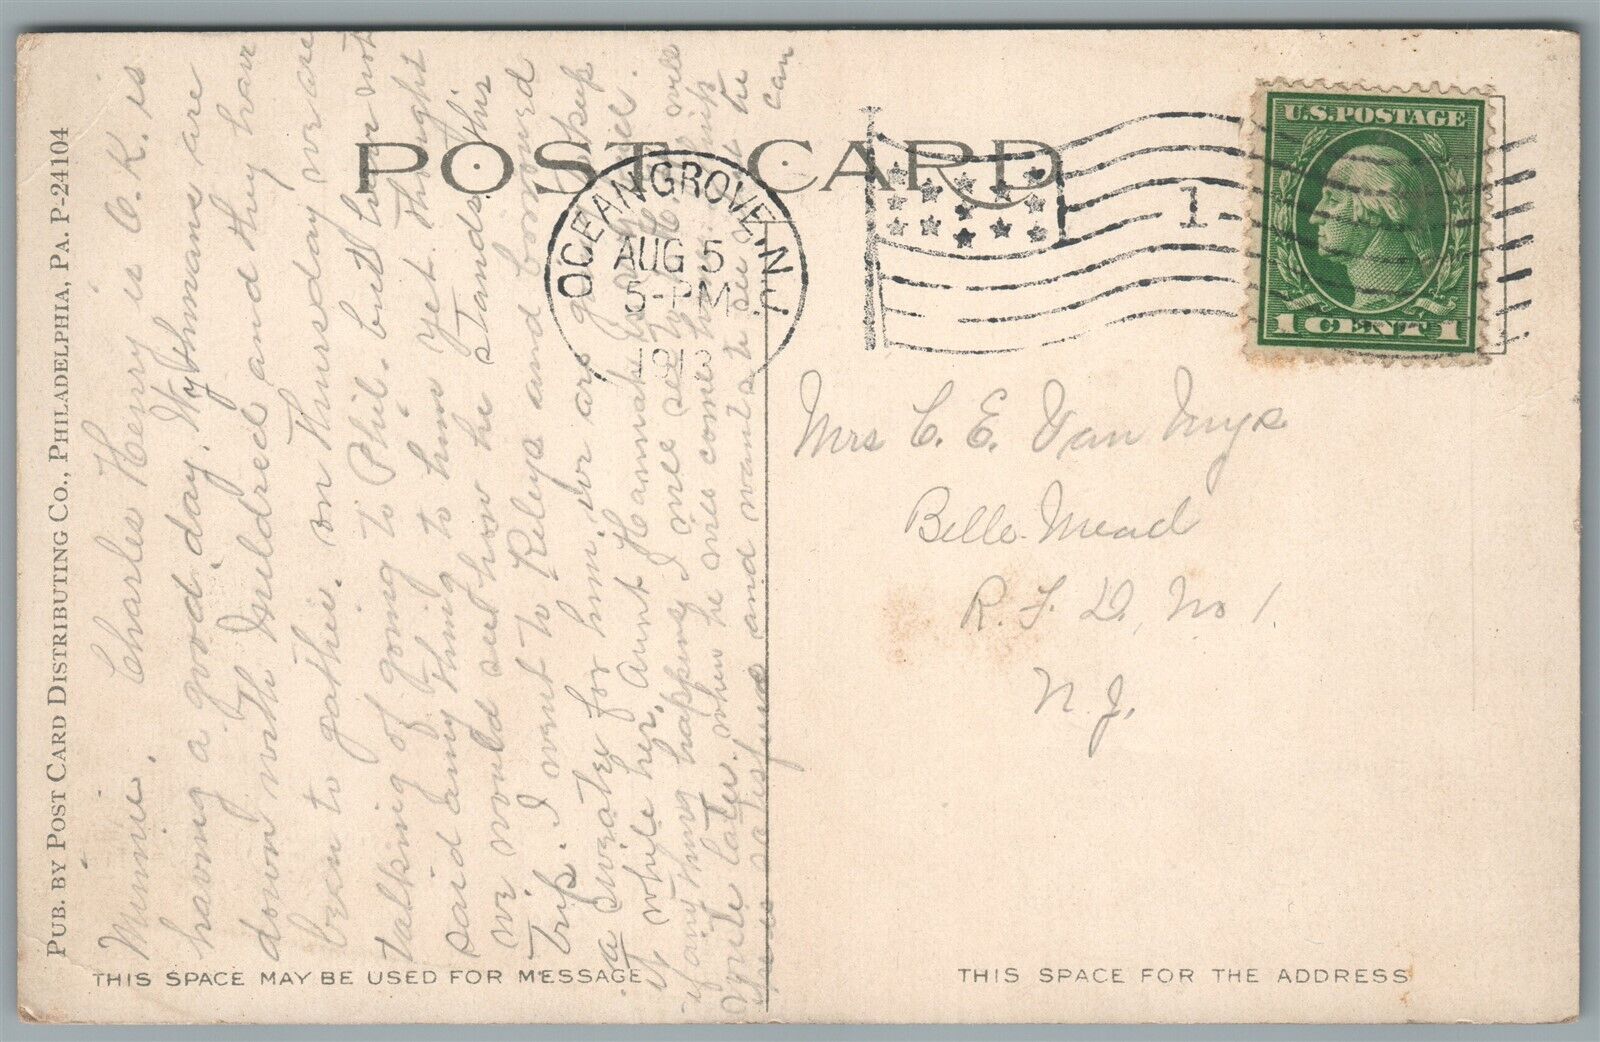 PUB. BY POST CARD DISTRIBUTING CO., PHILADELPHIA, PA. P-24104
POST CARD
OCEAN GROVE, N.J.
AUG 5
5-PM
191
1
U.S. POSTAGE
1 CENT 1
Minnie. Charles Henry is O.K. is
having a good day. are
down with Mildred and they have
been to gather. on Thursday we are
talking of going to Phil. but have not
said any thing to him yet. thought
we would see how he stands this
Trip. I went to Keleys and borrowed
a sweater for him, we are going keep
it while her, Aunt Hannah
if any thing happens I will see to it. will
write later. when he comes home
he is satisfied and wants to see the
can
Mrs C. E. Van Nuys
Belle Mead
R. F. D. No 1
N. J.
THIS SPACE MAY BE USED FOR MESSAGE
THIS SPACE FOR THE ADDRESS